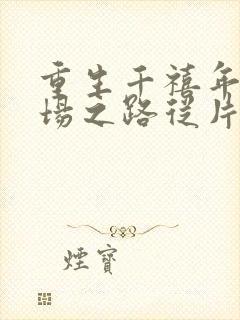 重生千禧年
场之路从片
煙寶